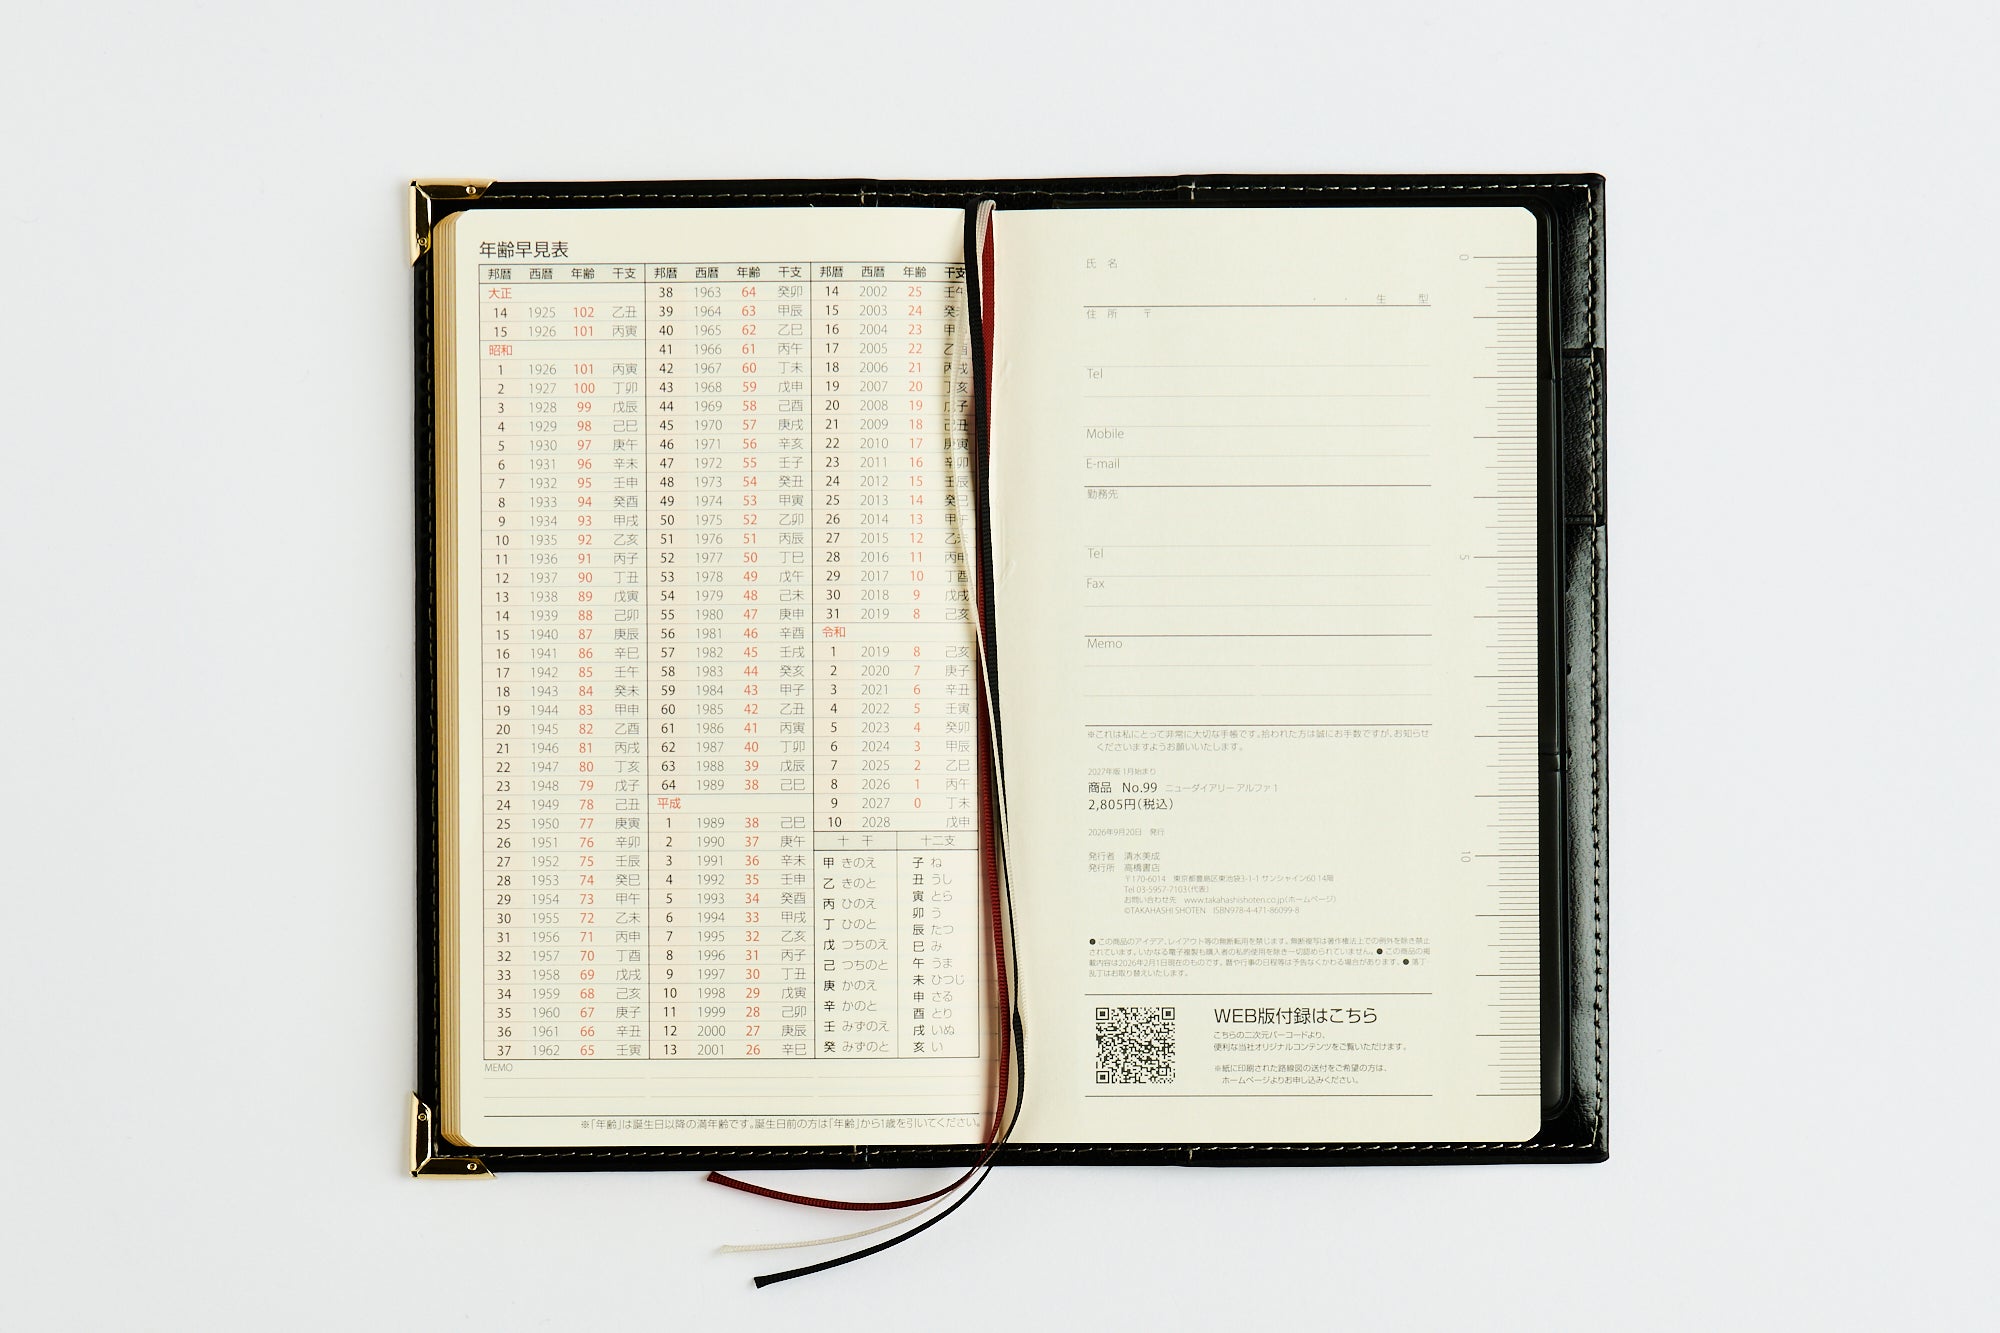 年齢早見表
邦暦 西暦 年齢 干支
大正
14 1925 102 乙丑
15 1926 101 丙寅
昭和
1 1926 101 丙寅
2 1927 100 丁卯
3 1928 99 戊辰
4 1929 98 己巳
5 1930 97 庚午
6 1931 96 辛未
7 1932 95 壬申
8 1933 94 癸酉
9 1934 93 甲戌
10 1935 92 乙亥
11 1936 91 丙子
12 1937 90 丁丑
13 1938 89 戊寅
14 1939 88 己卯
15 1940 87 庚辰
16 1941 86 辛巳
17 1942 85 壬午
18 1943 84 癸未
19 1944 83 甲申
20 1945 82 乙酉
21 1946 81 丙戌
22 1947 80 丁亥
23 1948 79 戊子
24 1949 78 己丑
25 1950 77 庚寅
26 1951 76 辛卯
27 1952 75 壬辰
28 1953 74 癸巳
29 1954 73 甲午
30 1955 72 乙未
31 1956 71 丙申
32 1957 70 丁酉
33 1958 69 戊戌
34 1959 68 己亥
35 1960 67 庚子
36 1961 66 辛丑
37 1962 65 壬寅
邦暦 西暦 年齢 干支
38 1963 64 癸卯
39 1964 63 甲辰
40 1965 62 乙巳
41 1966 61 丙午
42 1967 60 丁未
43 1968 59 戊申
44 1969 58 己酉
45 1970 57 庚戌
46 1971 56 辛亥
47 1972 55 壬子
48 1973 54 癸丑
49 1974 53 甲寅
50 1975 52 乙卯
51 1976 51 丙辰
52 1977 50 丁巳
53 1978 49 戊午
54 1979 48 己未
55 1980 47 庚申
56 1981 46 辛酉
57 1982 45 壬戌
58 1983 44 癸亥
59 1984 43 甲子
60 1985 42 乙丑
61 1986 41 丙寅
62 1987 40 丁卯
63 1988 39 戊辰
64 1989 38 己巳
平成
1 1989 38 己巳
2 1990 37 庚午
3 1991 36 辛未
4 1992 35 壬申
5 1993 34 癸酉
6 1994 33 甲戌
7 1995 32 乙亥
8 1996 31 丙子
9 1997 30 丁丑
10 1998 29 戊寅
11 1999 28 己卯
12 2000 27 庚辰
13 2001 26 辛巳
邦暦 西暦 年齢 干支
14 2002 25 壬午
15 2003 24 癸
16 2004 23 甲
17 2005 22 乙酉
18 2006 21 丙戌
19 2007 20 丁亥
20 2008 19 戊子
21 2009 18 己丑
22 2010 17 庚寅
23 2011 16 辛卯
24 2012 15 壬辰
25 2013 14 癸巳
26 2014 13 甲午
27 2015 12 乙未
28 2016 11 丙申
29 2017 10 丁酉
30 2018 9 戊戌
31 2019 8 己亥
令和
1 2019 8 己亥
2 2020 7 庚子
3 2021 6 辛丑
4 2022 5 壬寅
5 2023 4 癸卯
6 2024 3 甲辰
7 2025 2 乙巳
8 2026 1 丙午
9 2027 0 丁未
10 2028 戊申
十 干
甲 きのえ
乙 きのと
丙 ひのえ
丁 ひのと
戊 つちのえ
己 つちのと
庚 かのえ
辛 かのと
壬 みずのえ
癸 みずのと
十二支
子 ね
丑 うし
寅 とら
卯 う
辰 たつ
巳 み
午 うま
未 ひつじ
申 さる
酉 とり
戌 いぬ
亥 い
MEMO
※「年齢」は誕生日以降の満年齢です。誕生日前の方は「年齢」から1歳を引いてください。
氏 名
・ ・ 生 型
住 所 〒
Tel
Mobile
E-mail
勤務先
Tel
Fax
Memo
※これは私にとって非常に大切な手帳です。拾われた方は誠にお手数ですが、お知らせ
くださいますようお願いいたします。
2027年版 1月始まり
商品 No.99 ニューダイアリー アルファ 1
2,805円(税込)
2026年9月20日 発行
発行者 清水美成
発行所 高橋書店
〒170-6014 東京都豊島区東池袋3-1-1 サンシャイン60 14階
Tel 03-5957-7103(代表)
お問い合わせ先 www.takahashishoten.co.jp(ホームページ)
©TAKAHASHI SHOTEN ISBN978-4-471-86099-8
●この商品のアイデア、レイアウト等の無断転用を禁じます。無断複写は著作権法上での例外を除き禁止
されています。いかなる電子複製も購入者の私的使用を除き一切認められていません。●この商品の掲
載内容は2026年2月1日現在のものです。暦や行事の日程等は予告なくかわる場合があります。●落丁
乱丁はお取り替えいたします。
WEB版付録はこちら
こちらの二次元バーコードより、
便利な当社オリジナルコンテンツをご覧いただけます。
※紙に印刷された路線図の送付をご希望の方は、
ホームページよりお申し込みください。
0
5
10